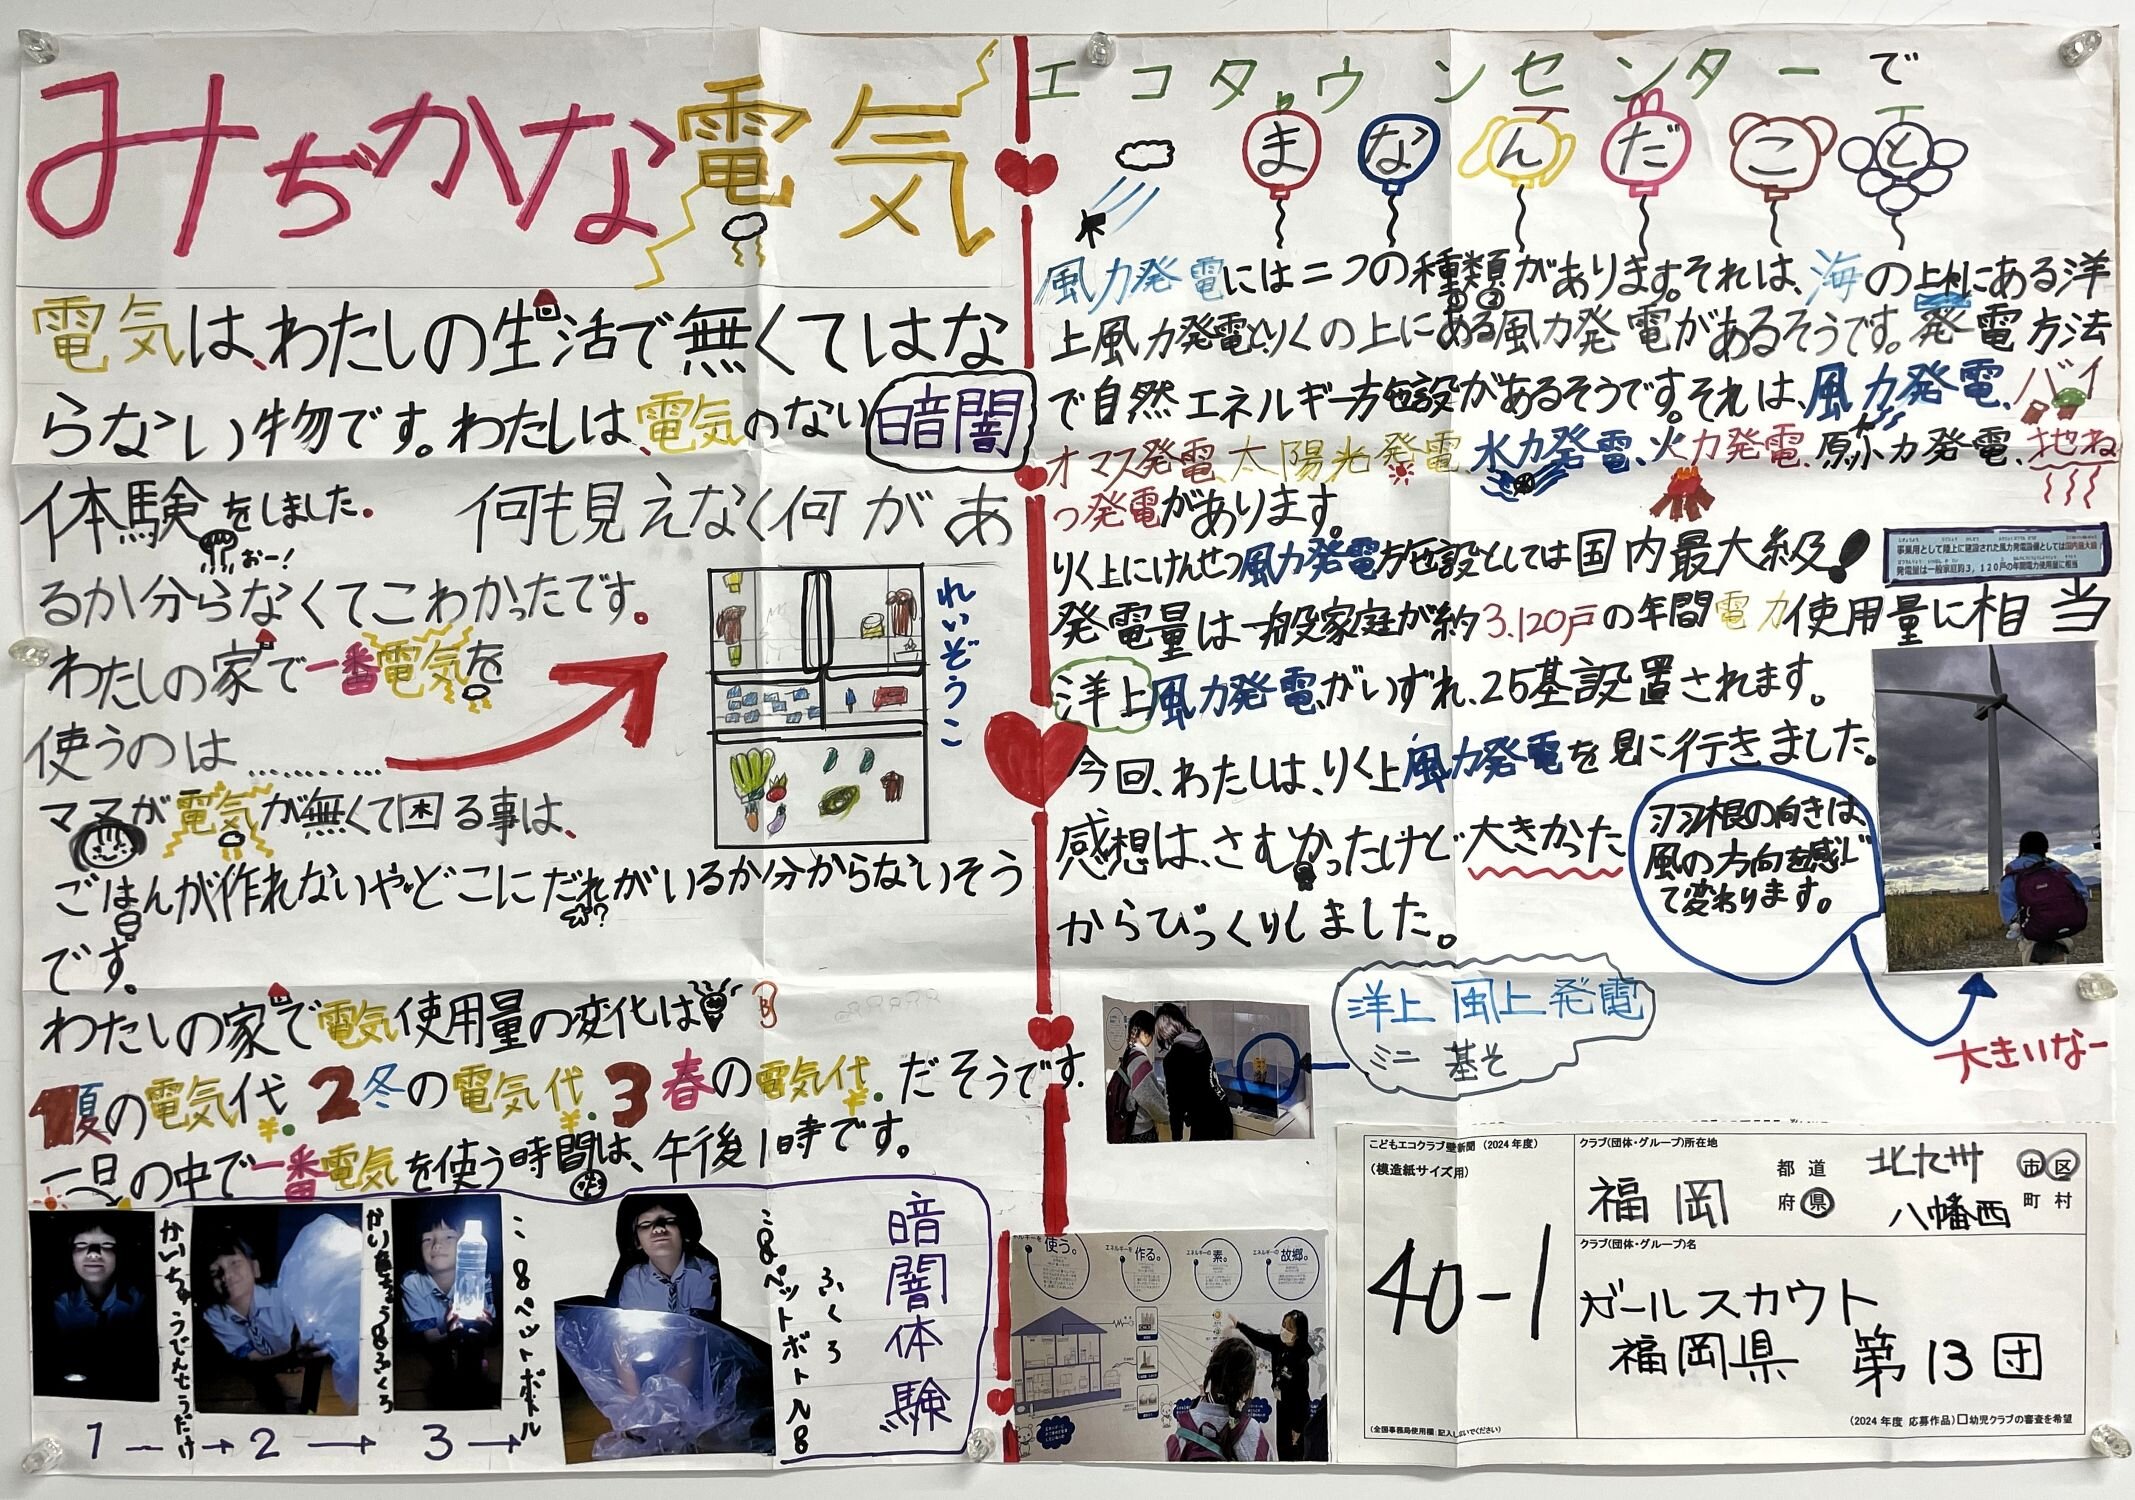 みぢかな電気
電気は、わたしの生活で無くてはな
らない物です。わたしは、電気のない暗闇
体験をしました。 何も見えなく何があ
おー!
るか分らなくてこわかったです。
わたしの家で一番電気を
使うのは…………
れいぞうこ
ママが電気が無くて困る事は、
ごはんが作れないやどこにだれがいるか分からないそう
です。
わたしの家で電気使用量の変化は
1夏の電気代.2冬の電気代.3春の電気代.だそうです.
一日の中で一番電気を使う時間は、午後1時です。
かいちゅうでんとうだけ
ふくろ
ペットボトル
ペットボトル
ふくろ
暗闇体験
1→2→3→
エコタウンセンターで
まなんだこと
風力発電には二つの種類があります。それは、海の上にある洋
上風力発電とりくの上にある風力発電があるそうです。発電方法
で自然エネルギー施設があるそうです。それは、風力発電、バイ
オマス発電、太陽光発電、水力発電、火力発電、原子力発電、地ね
つ発電があります。
りく上にけんせつ風力発電施設としては国内最大級!
事業用として陸上に建設された風力発電設備としては国内最大級
発電量は一般家庭約3,120戸の年間電力使用量に相当
発電量は一般家庭が約3.120戸の年間電力使用量に相当
洋上風力発電がいずれ、25基設置されます。
今回、わたしは、りく上風力発電を見に行きました。
感想は、さむかったけど大きかった
からびっくりしました。
羽根の向きは、
風の方向を感じ
て変わります。
大きいなー
洋上風上発電
ミニ 基そ
使う。
エネルギーを作る。
エネルギーの素。
エネルギーの故郷。
こどもエコクラブ壁新聞(2024年度)
(模造紙サイズ用)
40-1
(全国事務局使用欄:記入しないでください)
クラブ(団体・グループ)所在地
福岡 都道府県 北九州 市区町村
八幡西
クラブ(団体・グループ)名
ガールスカウト
福岡県 第13団
(2024年度 応募作品)□幼児クラブの審査を希望